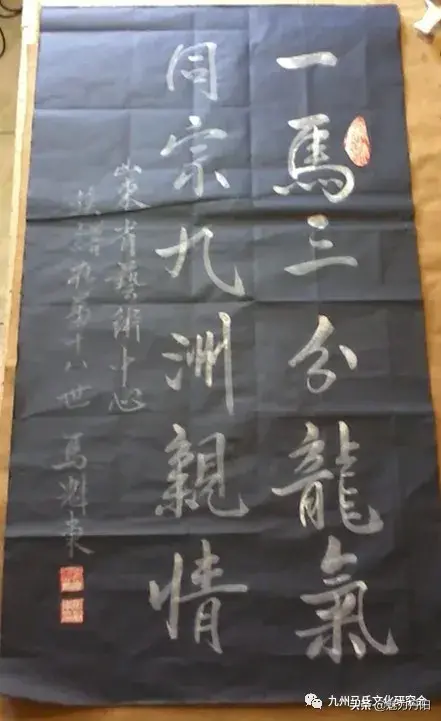 一馬三分龍氣
同宗九洲親情
山東省藝術中心
十八世 馬東
九州马氏文化研究会
头条@魅力丹阳